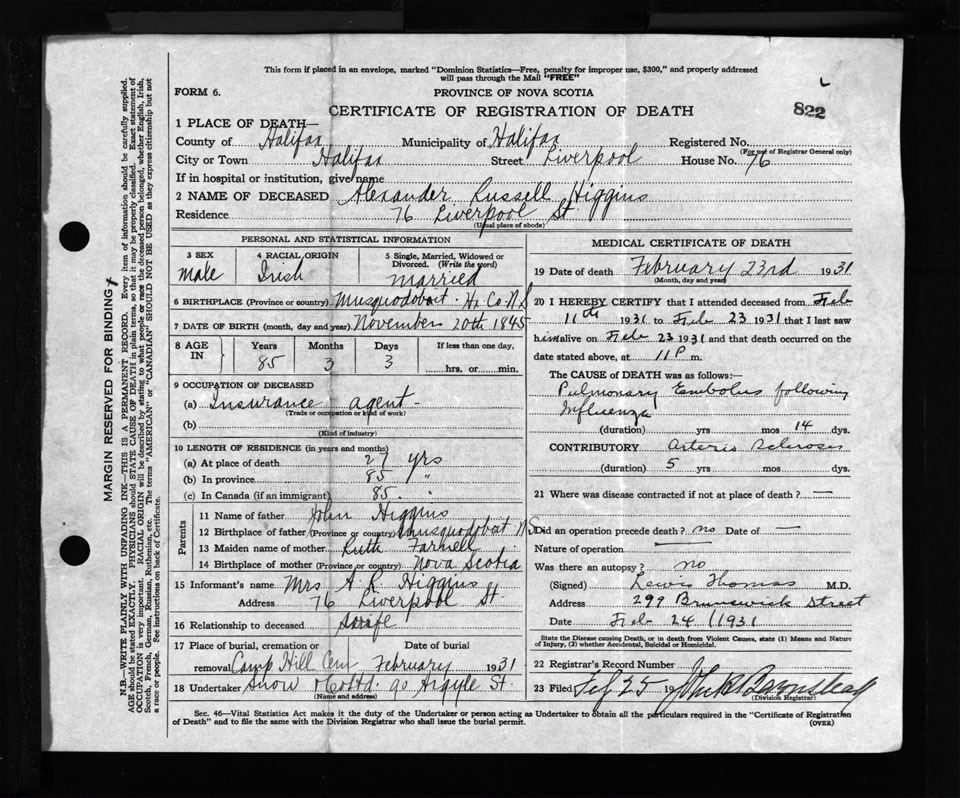 This form if placed in an envelope, marked "Dominion Statistics—Free, penalty for improper use, $300," and properly addressed
will pass through the Mail "FREE"
FORM 6.
PROVINCE OF NOVA SCOTIA
822
CERTIFICATE OF REGISTRATION OF DEATH
1 PLACE OF DEATH—
County of Halifax Municipality of Halifax Registered No.
(For use of Registrar General only)
City or Town Halifax Street Liverpool House No. 76
If in hospital or institution, give name
2 NAME OF DECEASED Alexander Russell Higgins
Residence 76 Liverpool St.
(Usual place of abode)
PERSONAL AND STATISTICAL INFORMATION
3 SEX 4 RACIAL ORIGIN 5 Single, Married, Widowed or
Divorced. (Write the word)
male Irish married
6 BIRTHPLACE (Province or country) Musquodoboit. Hx Co. N.S
7 DATE OF BIRTH (month, day and year) November 20th 1845
8 AGE IN Years Months Days If less than one day,
85 3 3 hrs. or min.
9 OCCUPATION OF DECEASED
(a) Insurance agent -
(Trade or occupation or kind of work)
(b)
(Kind of industry)
10 LENGTH OF RESIDENCE (in years and months)
(a) At place of death 27 yrs
(b) In province 85 "
(c) In Canada (if an immigrant) 85. "
Parents
11 Name of father John Higgins
12 Birthplace of father (Province or country) Musquodoboit N.S
13 Maiden name of mother Ruth Farnell
14 Birthplace of mother (Province or country) Nova Scotia
15 Informant's name Mrs A. R. Higgins
Address 76 Liverpool St.
16 Relationship to deceased wife
17 Place of burial, cremation or Date of burial
removal Camp Hill Cem February 1931
18 Undertaker Snow & Co Ltd. 90 Argyle St.
(Name and address)
MEDICAL CERTIFICATE OF DEATH
19 Date of death February 23rd 1931
(Month, day and year)
20 I HEREBY CERTIFY that I attended deceased from Feb
11th 1931 to Feb 23 1931 that I last saw
him alive on Feb 23 1931 and that death occurred on the
date stated above, at 11 P m.
The CAUSE OF DEATH was as follows:
Pulmonary Embolus following
Influenza
(duration) yrs mos 14 dys.
CONTRIBUTORY Arterio Sclerosis
(duration) 5 yrs mos dys.
21 Where was disease contracted if not at place of death? —
Did an operation precede death? no Date of —
Nature of operation —
Was there an autopsy? no
(Signed) Lewis Thomas M.D.
Address 299 Brunswick Street
Date Feb 24 1931
State the Disease causing Death, or in death from Violent Causes, state (1) Means and Nature
of Injury, (2) whether Accidental, Suicidal or Homicidal.
22 Registrar's Record Number
23 Filed Feb 25 19
(Division Registrar)
Sec. 46—Vital Statistics Act makes it the duty of Undertaker or person acting as Undertaker to obtain all the particulars required in the "Certificate of Registration
of Death" and to file the same with the Division Registrar who shall issue the burial permit.
(OVER)
MARGIN RESERVED FOR BINDING
N.B.—WRITE PLAINLY WITH UNFADING INK—THIS IS A PERMANENT RECORD. Every item of information should be carefully supplied.
AGE should be stated EXACTLY. PHYSICIANS should STATE CAUSE OF DEATH in plain terms, so that it may be properly classified. Exact statement of
OCCUPATION is very important. RACIAL ORIGIN will be described by stating to what people or race the deceased person belonged, whether English, Irish,
Scotch, French, German, Russian, Ruthenian, etc. The terms "AMERICAN" or "CANADIAN" SHOULD NOT BE USED as they express citizenship but not
a race or people. See instructions on back of Certificate.